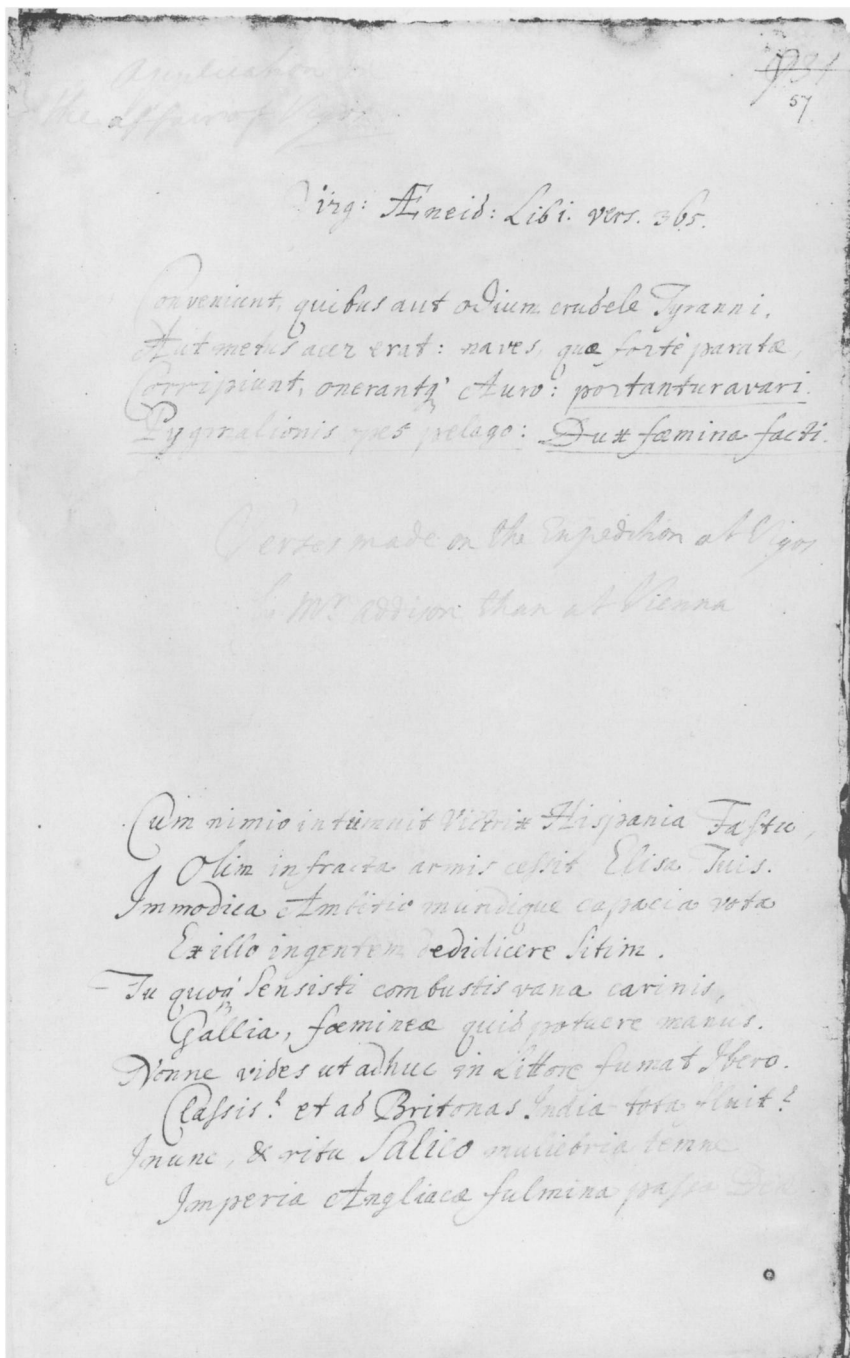 Application
the affair of Vigos
57
Virg: Æneid: Lib i. vers. 365.
Conveniunt, quibus aut odium crudele Tyranni,
Aut metus acer erat: naves, quæ fortè paratæ,
Corripiunt, onerantq; Auro: portantur avari
Pygmalionis opes pelago: Dux fœmina facti.
Verses made on the Expedition at Vigos
by Mr Addison than at Vienna
Cum nimio intumuit Victrix Hispania Fastu,
Olim infracta armis cessit Elisa Tuis.
Immodica Ambitio mundique capacia vota
Ex illo ingentem dedidicere Sitim.
Tu quoq; Sensisti combustis vana carinis,
Gallia, fœmineæ quid potuere manus.
Nonne vides ut adhuc in Littore fumat Ibero
Classis? et ad Britonas India tota fluit?
I nunc, & ritu Salico muliebria temne
Imperia Angliacæ fulmina passa Deæ